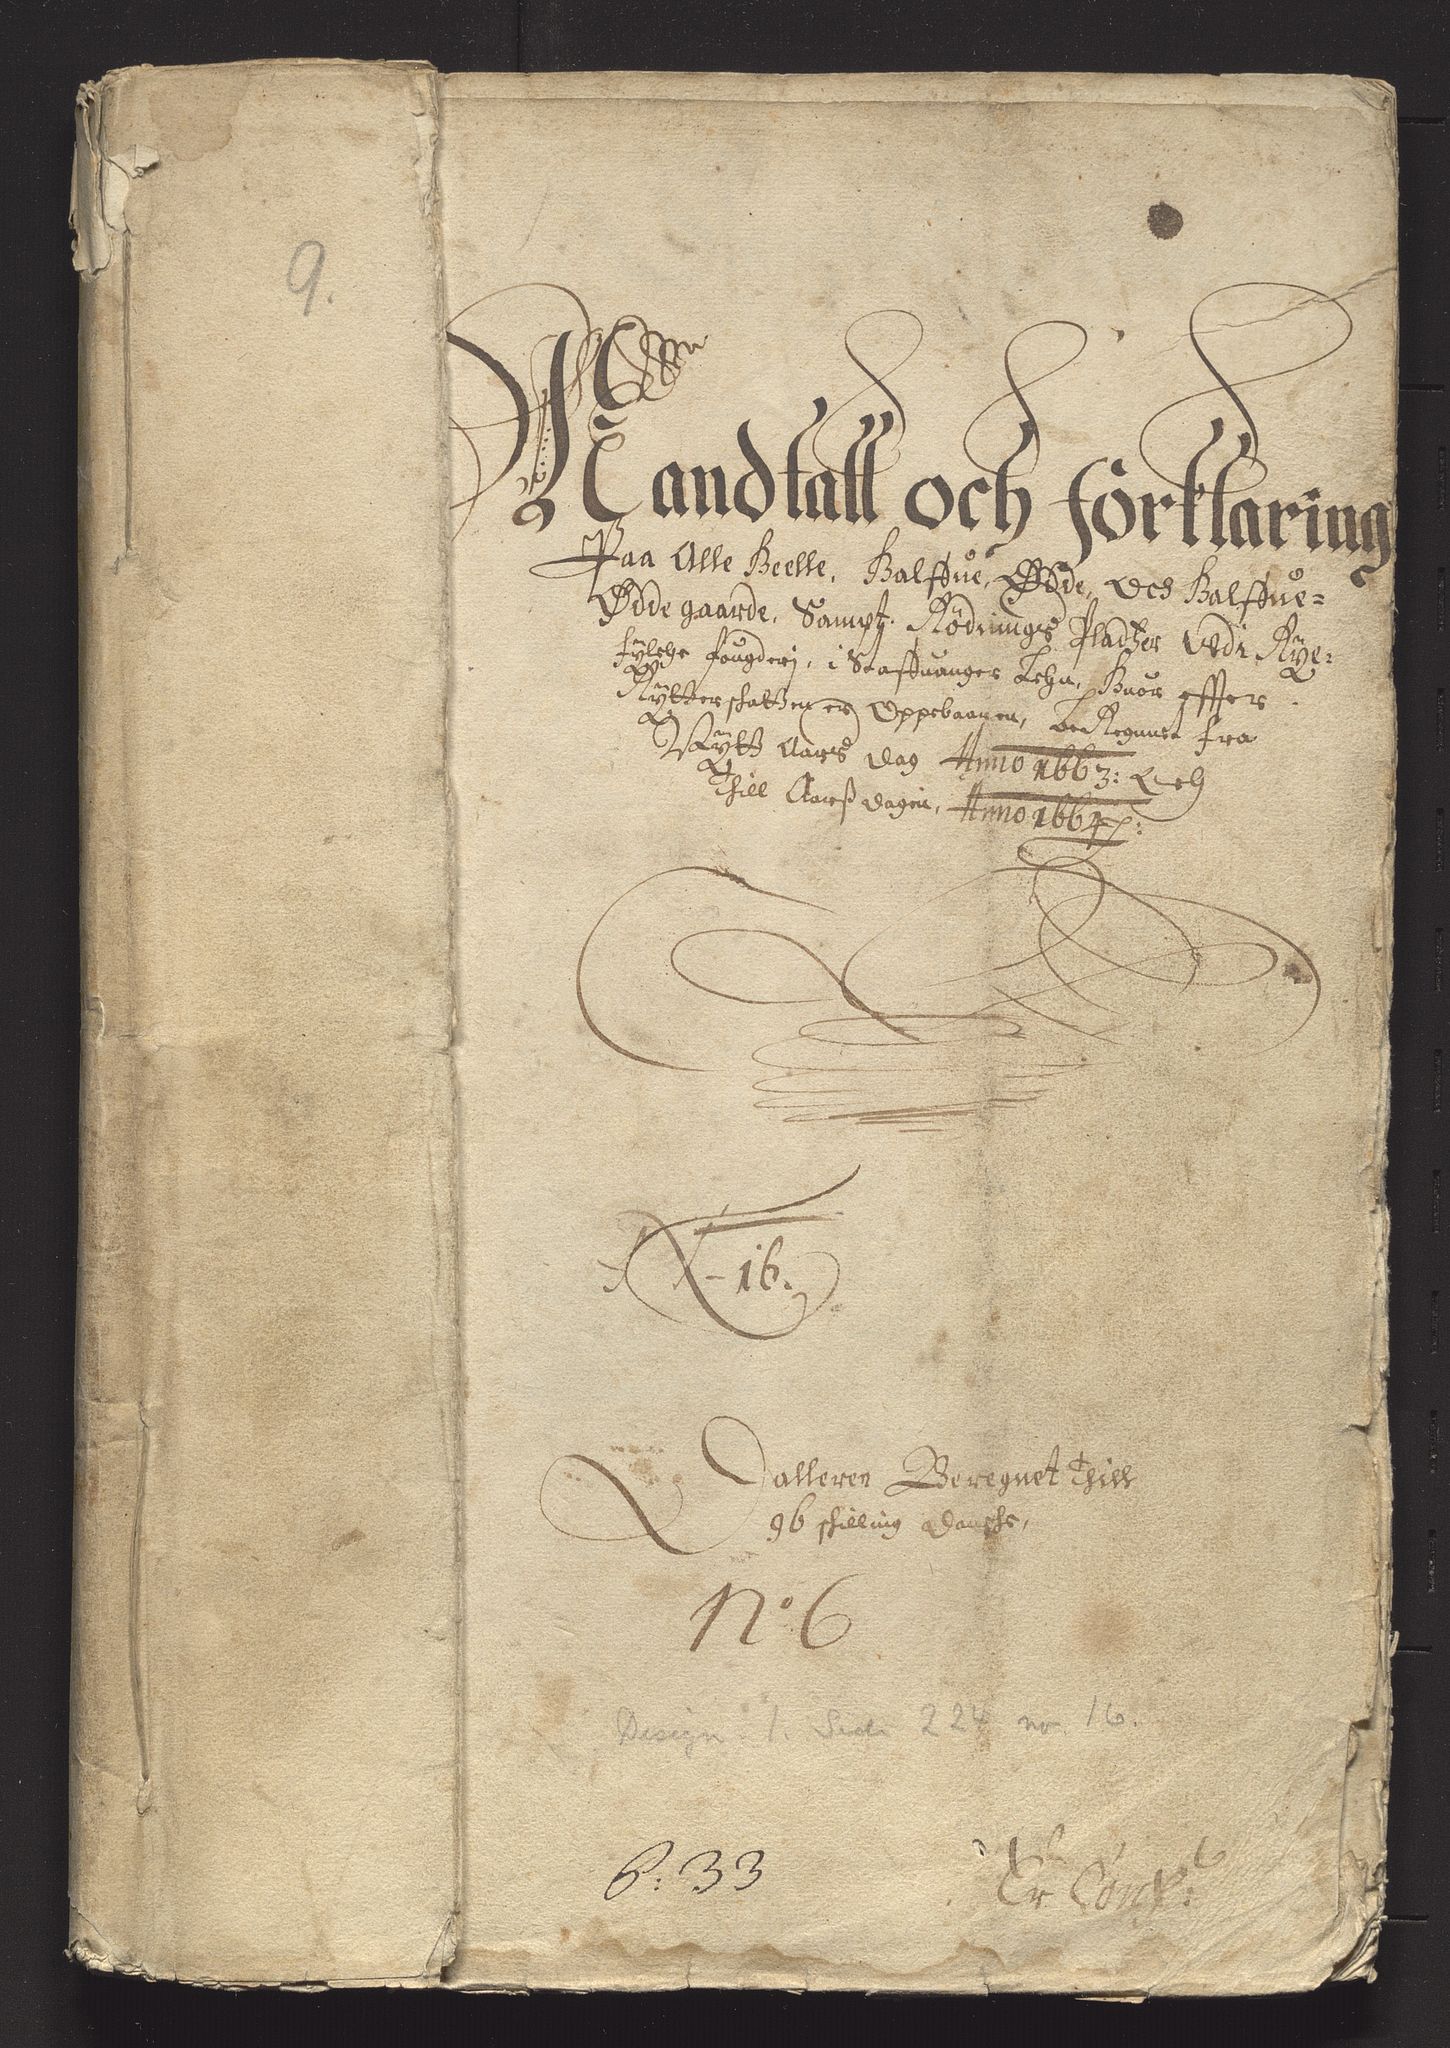 9.
Mandtall och förklaring
Paa Alle Heelle, Halffue, Ødde, och Halffue-
Ødde gaarde, Sampt Rödnings Pladtzer Vdi Rÿe-
fÿlche fougderj, i Staffuanger Lehn, Huor effter
Rÿtterschatten er Oppebaaren, beRegnnet fra
Nÿtt Aars dag Anno 1663: Och
Thill Aarß dagen, Anno 1664:
16.
Dalleren Beregnet Thill
96 schilling dansche,
No 6
Design. 1. Side 224 no. 16.
6:33
Er Conf: